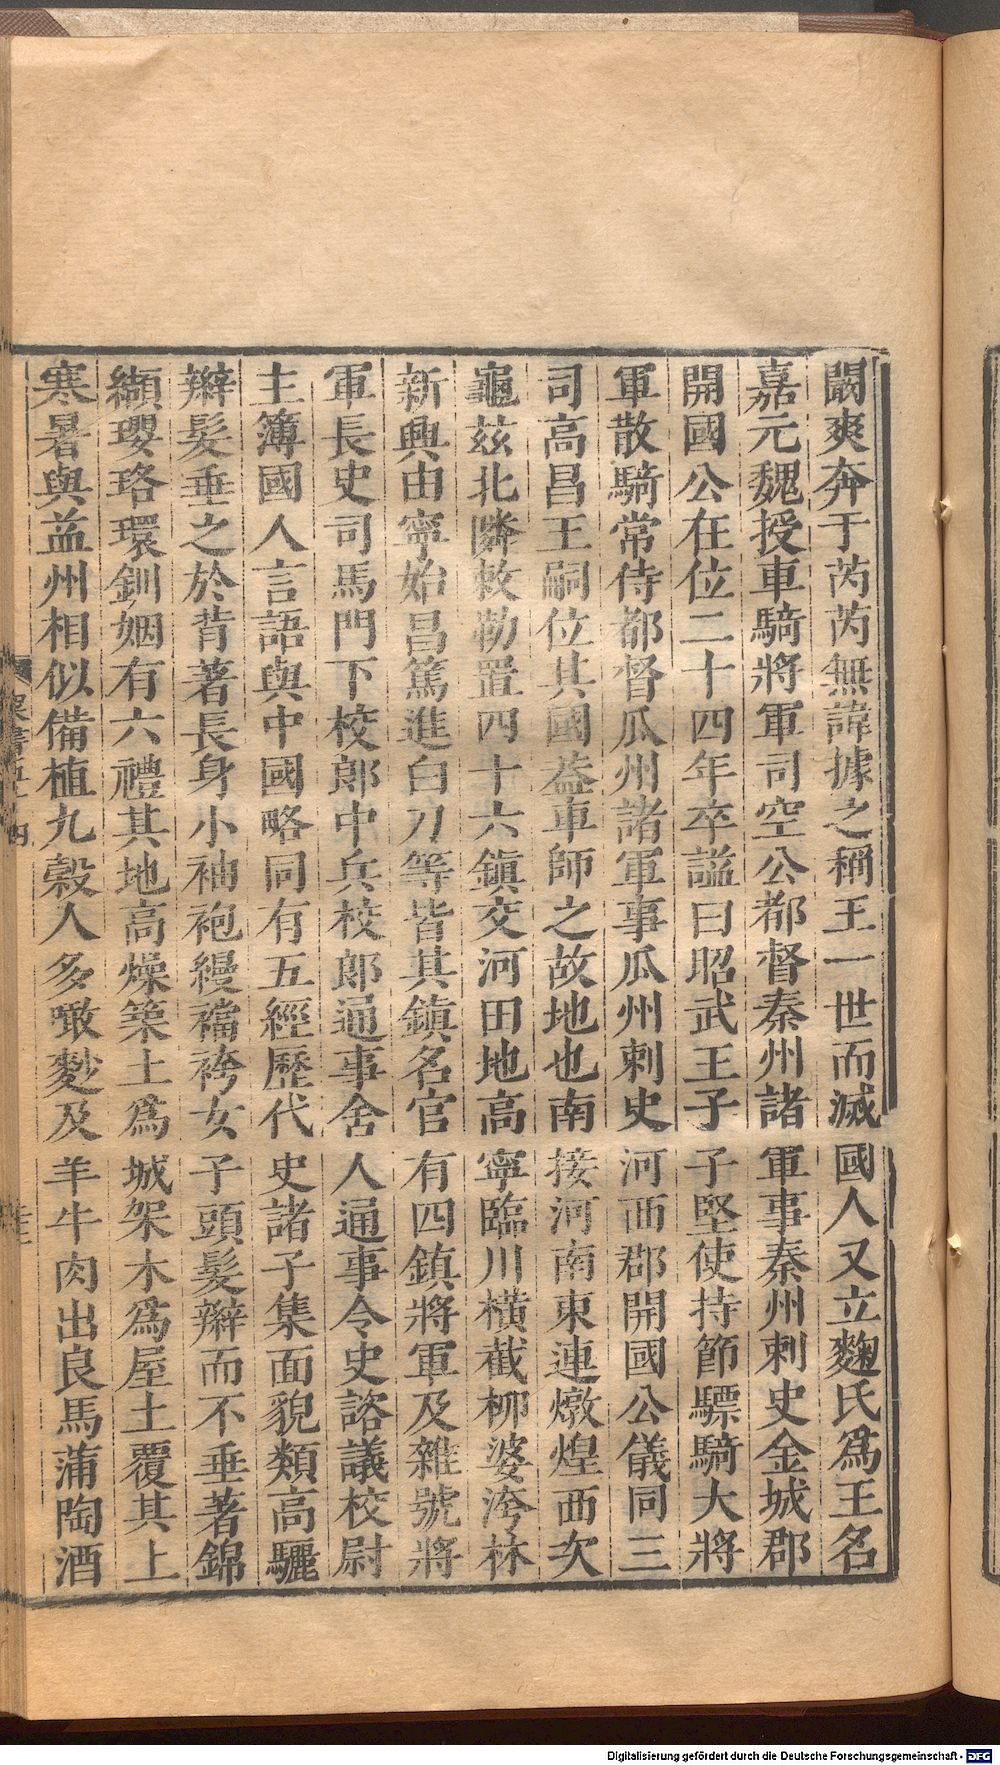 闞爽奔于芮芮無諱據之稱王一世而滅國人又立麴氏爲王名
嘉元魏授車騎將軍司空公都督秦州諸軍事秦州刺史金城郡
開國公在位二十四年卒謚曰昭武王子子堅使持節驃騎大將
軍散騎常侍都督瓜州諸軍事瓜州刺史河西郡開國公儀同三
司高昌王嗣位其國葢車師之故地也南接河南東連燉煌西次
龜茲北隣敕勒置四十六鎮交河田地高寧臨川橫截柳婆洿林
新興由寧始昌篤進白刀等皆其鎮名官有四鎮將軍及雜號將
軍長史司馬門下校郞中兵校郞通事舍人通事令史諮議校尉
主簿國人言語與中國略同有五經歷代史諸子集面貌類高驪
辮髮垂之於背著長身小袖袍縵襠袴女子頭髮辮而不垂著錦
纈瓔珞環釧姻有六禮其地高燥築土爲城架木爲屋土覆其上
寒暑與益州相似備植九穀人多噉麨及羊牛肉出良馬蒲陶酒
梁書五十四
Digitalisierung gefördert durch die Deutsche Forschungsgemeinschaft - DFG